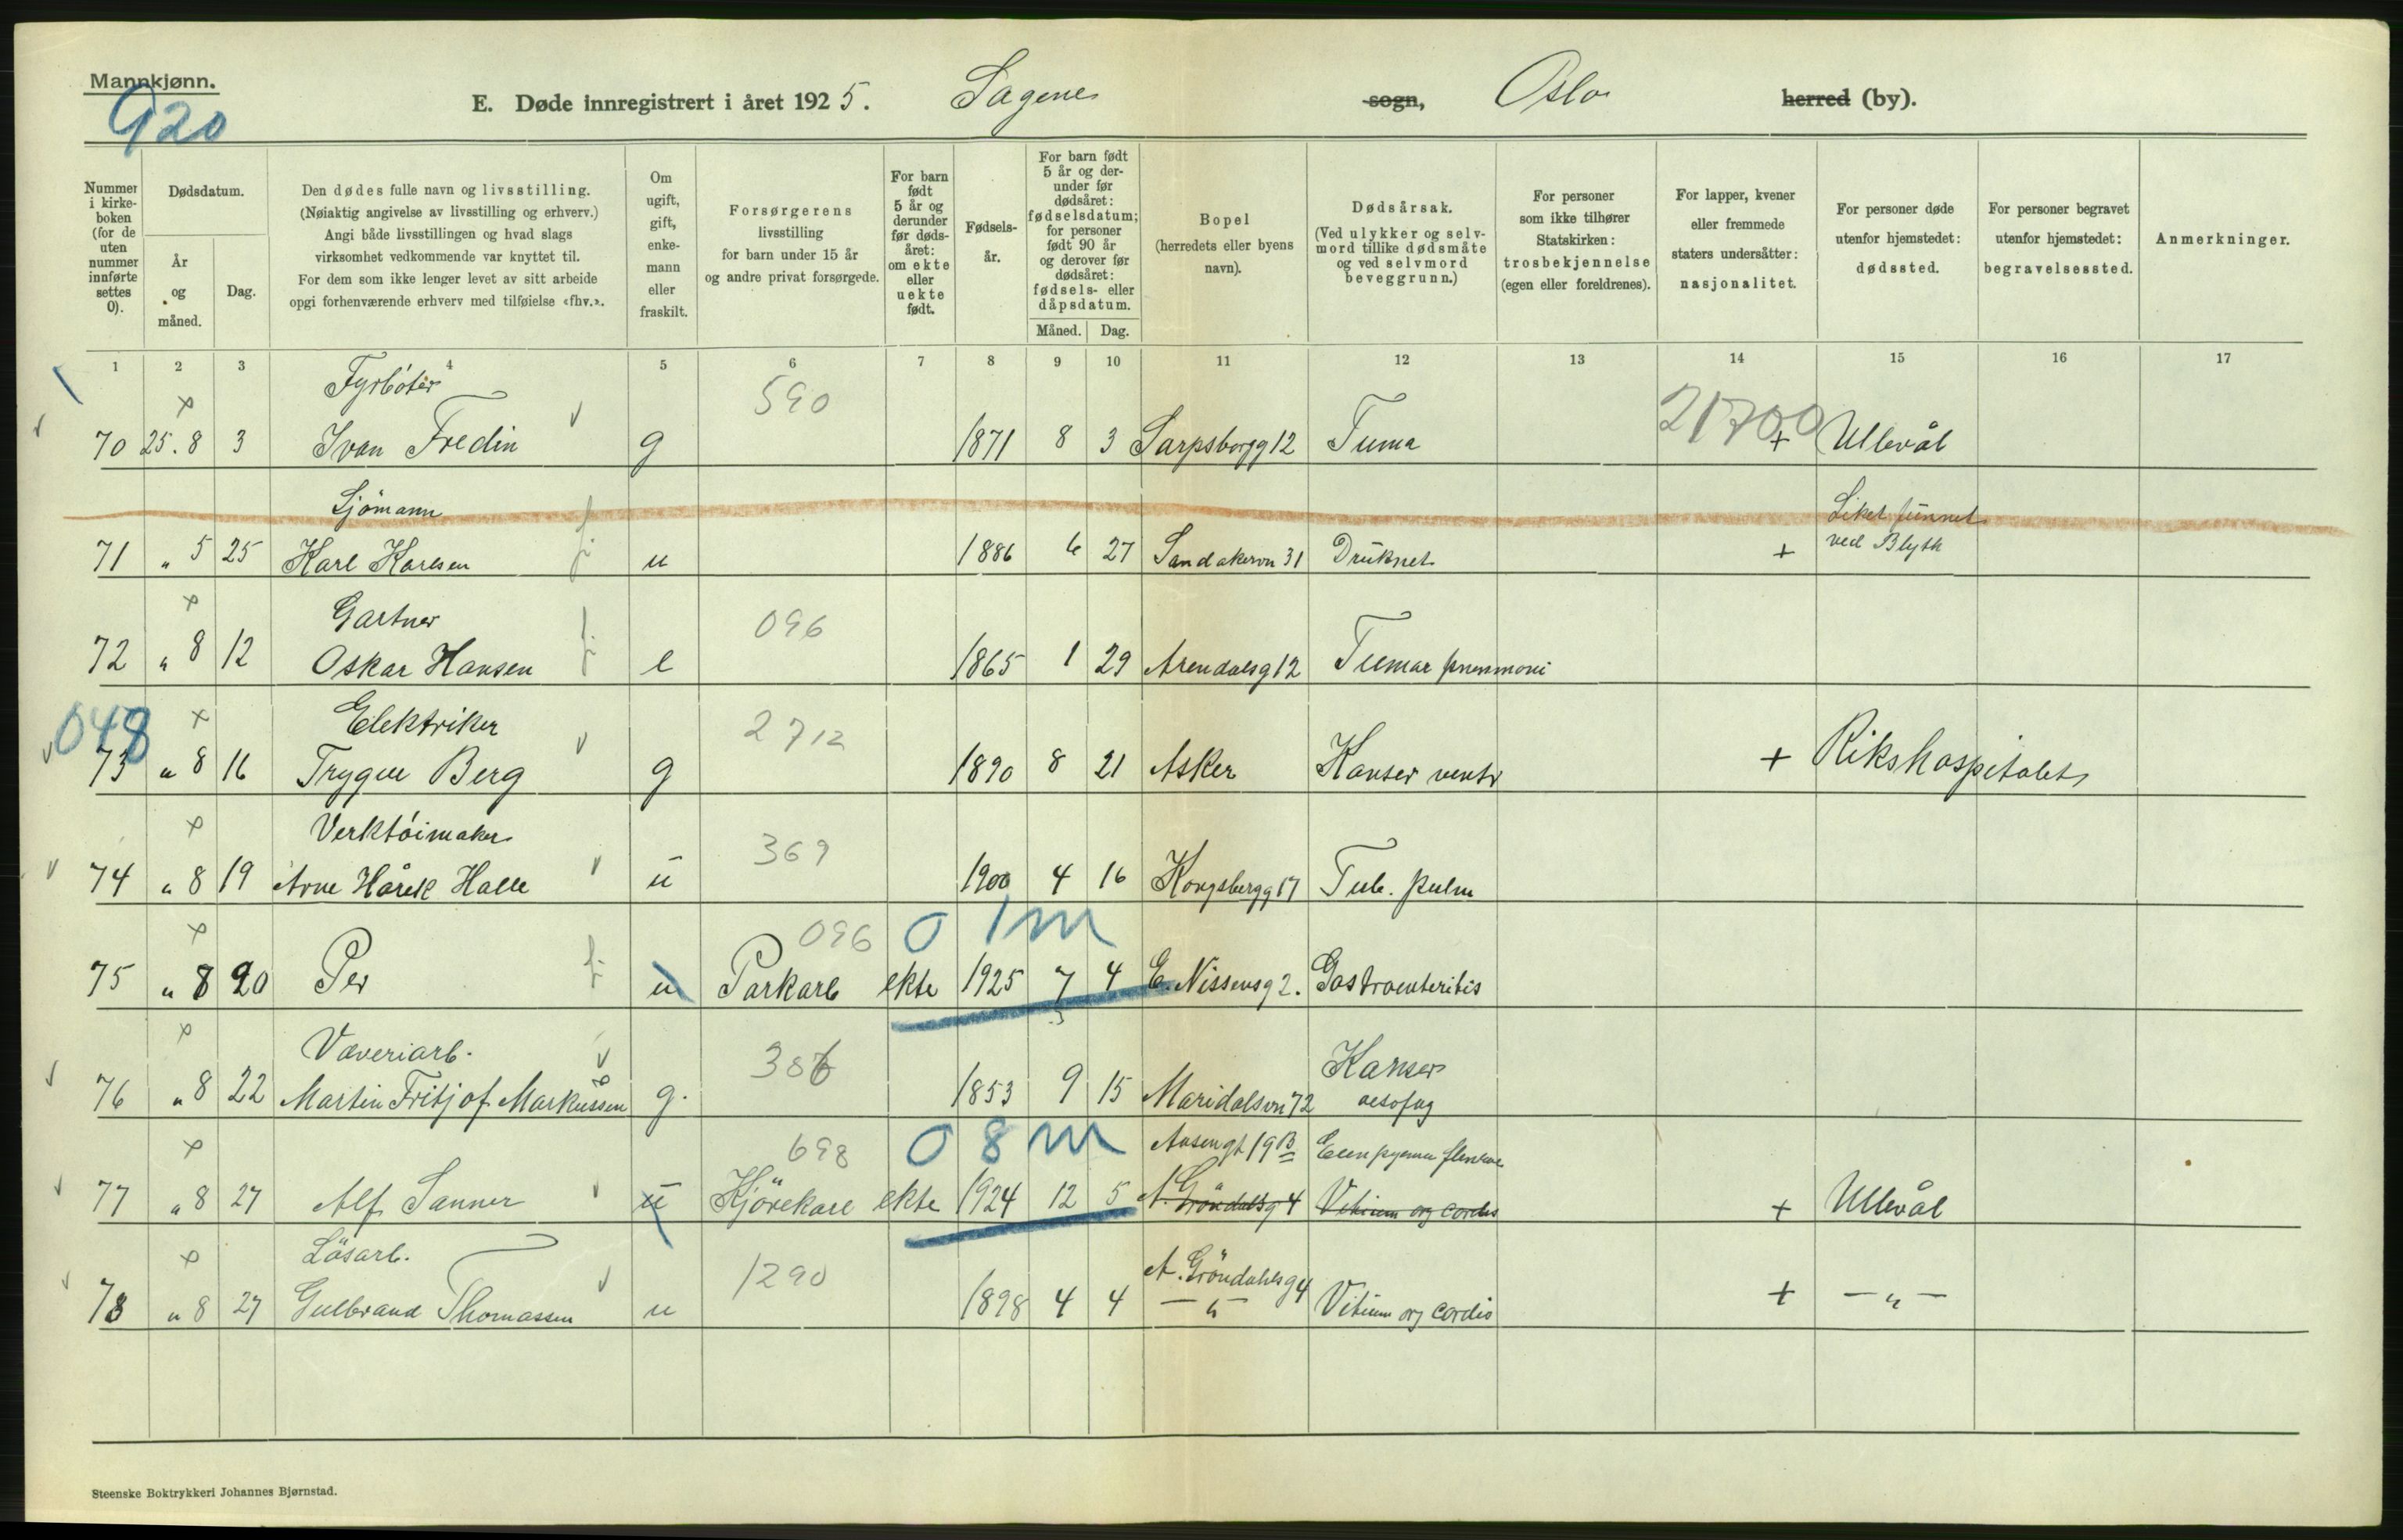 Mannkjønn.
920
E. Døde innregistrert i året 1925. Sagene sogn, Oslo herred (by).
Nummer i kirkeboken (for de uten nummer innførte settes 0).
Dødsdatum.
År og måned.
Dag.
Den dødes fulle navn og livsstilling.
(Nøiaktig angivelse av livsstilling og erhverv.)
Angi både livsstillingen og hvad slags
virksomhet vedkommende var knyttet til.
For dem som ikke lenger levet av sitt arbeide
opgi forhenværende erhverv med tilføielse «fhv.».
Om ugift, gift, enkemann eller fraskilt.
Forsørgerens livsstilling for barn under 15 år og andre privat forsørgede.
For barn født 5 år og derunder før dødsåret: om ekte eller uekte født.
Fødselsår.
For barn født 5 år og derunder før dødsåret: fødselsdatum; for personer født 90 år og derover før dødsåret: fødsels- eller dåpsdatum.
Måned. Dag.
Bopel (herredets eller byens navn).
Dødsårsak. (Ved ulykker og selvmord tillike dødsmåte og ved selvmord beveggrunn.)
For personer som ikke tilhører Statskirken: trosbekjennelse (egen eller foreldrenes).
For lapper, kvener eller fremmede staters undersåtter: nasjonalitet.
For personer døde utenfor hjemstedet: dødssted.
For personer begravet utenfor hjemstedet: begravelsessted.
Anmerkninger.
1 2 3 4 5 6 7 8 9 10 11 12 13 14 15 16 17
Fyrbøter 590 21700
70 25. 8 3 Ivan Fredin g 1871 8 3 Sarpsborgg 12 Tuma + Ullevål
Sjömann Liket funnet
71 " 5 25 Karl Karlsen u 1886 6 27 Sandakervn 31 Druknet + ved Blyth
Gartner 096
72 " 8 12 Oskar Hansen e 1865 1 29 Arendalsg 12 Tumar pneumoni
048 Elektriker 2712
73 " 8 16 Trygve Berg g 1890 8 21 Asker Kanser ventr + Rikshospitalet
Verktöimaker 369
74 " 8 19 Arne Hårek Halle u 1900 4 16 Kongsbergg 17 Tub. pulm
096 0 1m
75 " 8 20 Per u Parkarb ekte 1925 7 4 E. Nissensg 2. Gastroenteritis
Væveriarb. 386 Kanser
76 " 8 22 Martin Fritjof Markussen g. 1853 9 15 Maridalsvn 72 oesofag
698 0 8 m Aasengt 19B Empyema
77 " 8 27 Alf Sanner u Kjörekarl ekte 1924 12 5 A. Gröndalsg 4 Vitium org cordis + Ullevål
Lösarb. 1290 A. Gröndahlsg 4
78 " 8 27 Gulbrand Thomassen u 1898 4 4 — " — Vitium org cordis + — " —
Steenske Boktrykkeri Johannes Bjørnstad.